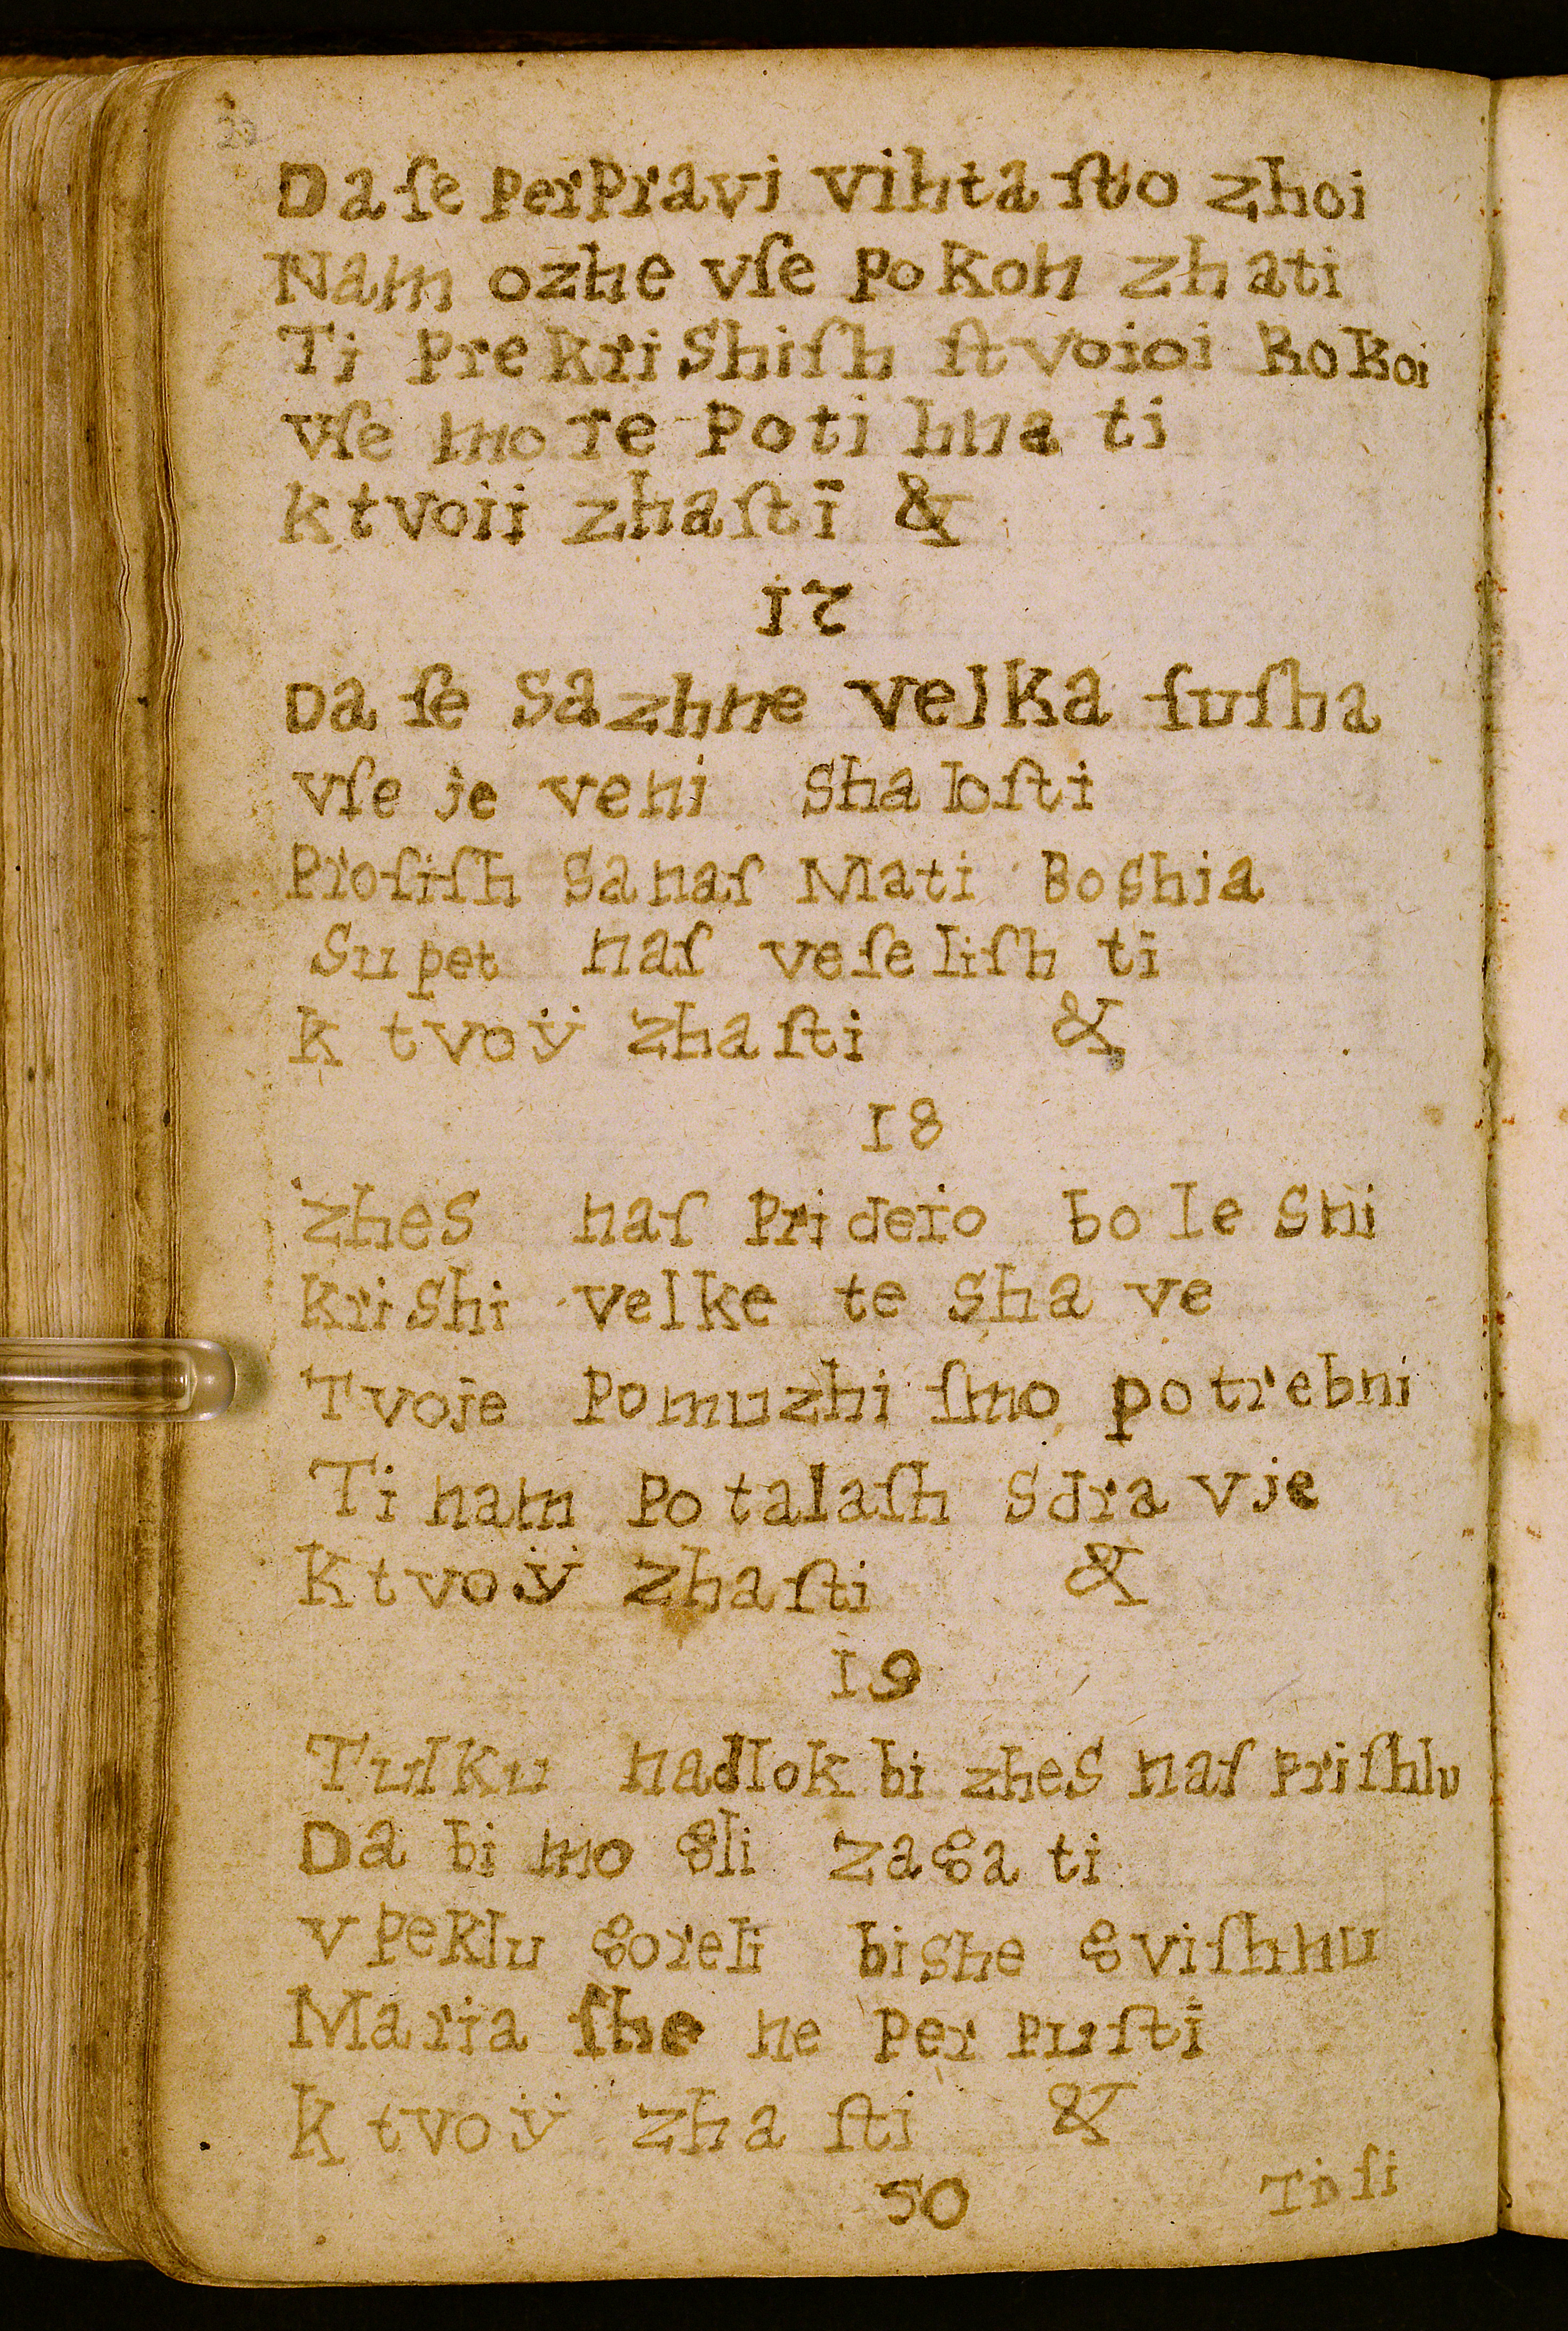 Da ſe perpravi vihta ſto zhoi
Nam ozhe vſe pokon zhati
Ti prekriShiſh ſtvoioi Rokoi
vſe more potihna ti
k tvoii zhaſti &
17
Da ſe Sazhne velka ſuſha
vſe je veni Shaloſti
Proſiſh Sanaſ Mati Boshia
Supet naſ veſeliſh ti
k tvoÿ zhaſti &
18
zhes naſ prideio boleSni
kriShi velke teShave
Tvoje pomuzhi ſmo potrebni
Ti nam potalaſh Sdravje
k tvoÿ zhaſti &
19
Tulku nadlok bi zhes naſ priſhlu
Da bi mogli zagati
v peklu goreli biShe gviſhnu
Maria ſhe ne perpuſti
k tvoÿ zhaſti &
50 Ti ſi